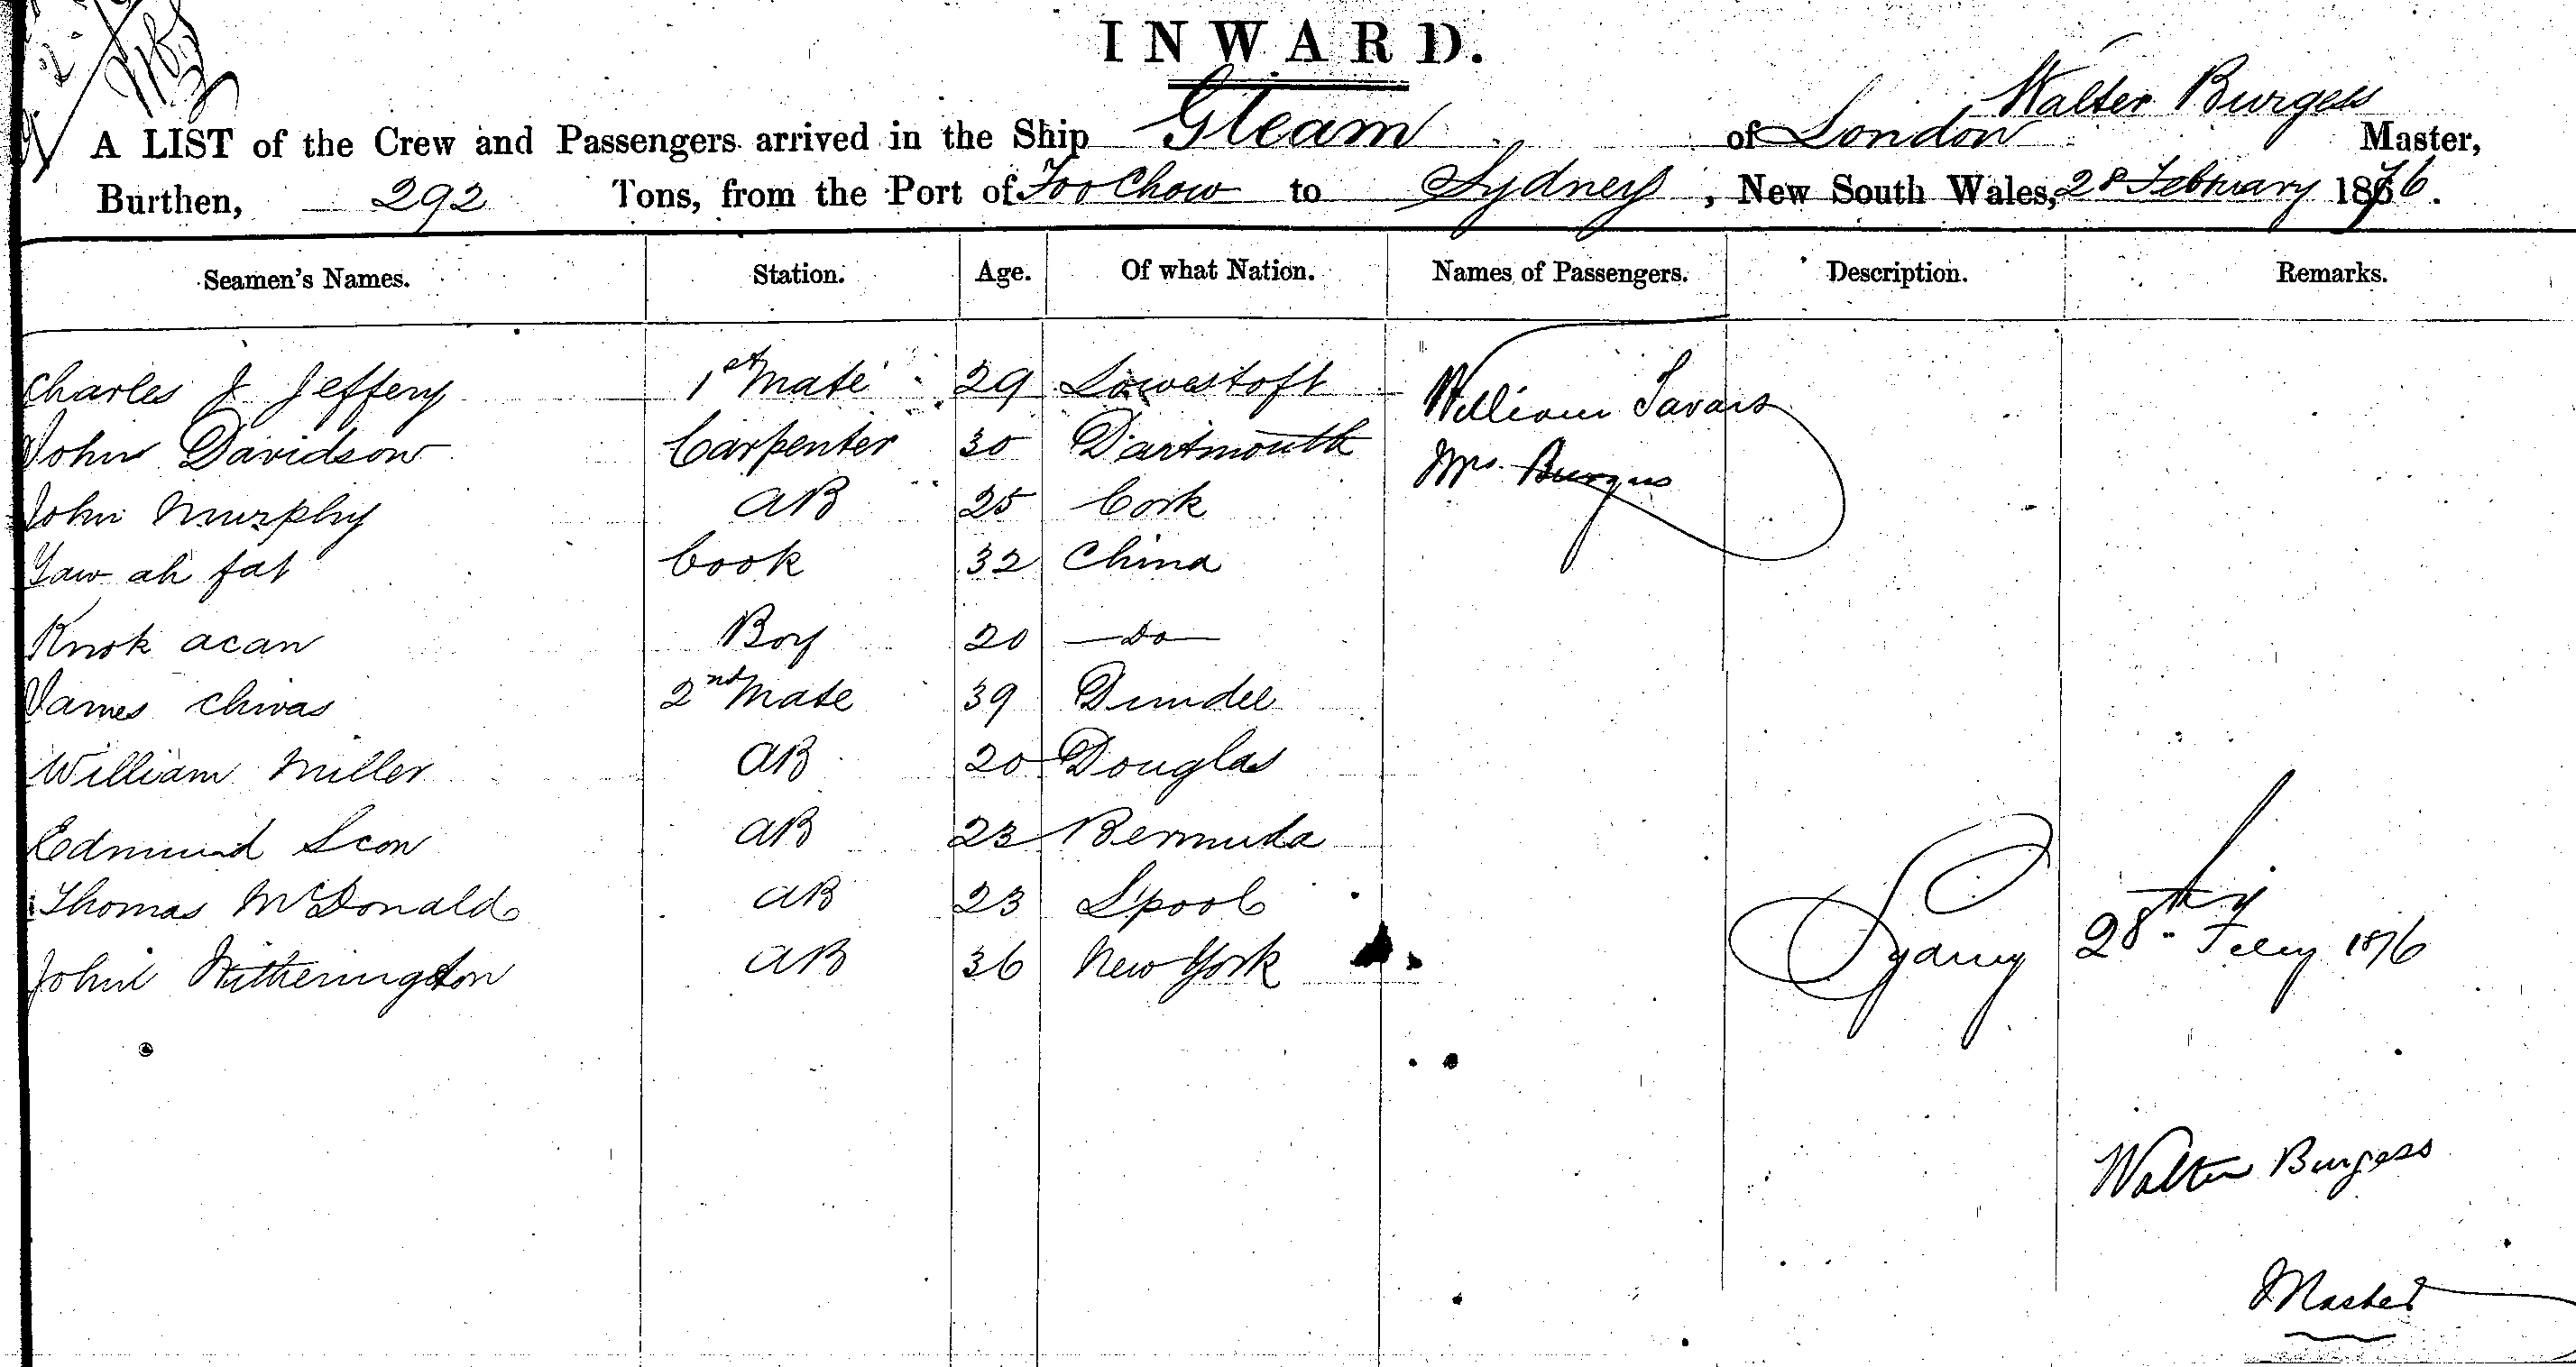 INWARD.
Walter Burgess
A LIST of the Crew and Passengers arrived in the Ship Gleam of London Master,
Burthen, 292 Tons, from the Port of Foo Chow to Sydney, New South Wales, 28 February 1876.
Seamen's Names. Station. Age. Of what Nation. Names of Passengers. Description. Remarks.
Charles J Jeffery 1st Mate 29 Lowestoft William Tavars
John Davidson Carpenter 30 Dartmouth Mrs. Burgess
John Murphy AB 25 Cork
Yaw ah fat Cook 32 China
Knok acan Boy 20 —Do—
James Chivas 2nd Mate 39 Dundee
William Miller AB 20 Douglas
Edmund Scon AB 23 Bermuda
Thomas McDonald AB 23 Lpool
John Witherington AB 36 New York
Sydney 28th Feby 1876
Walter Burgess
Master